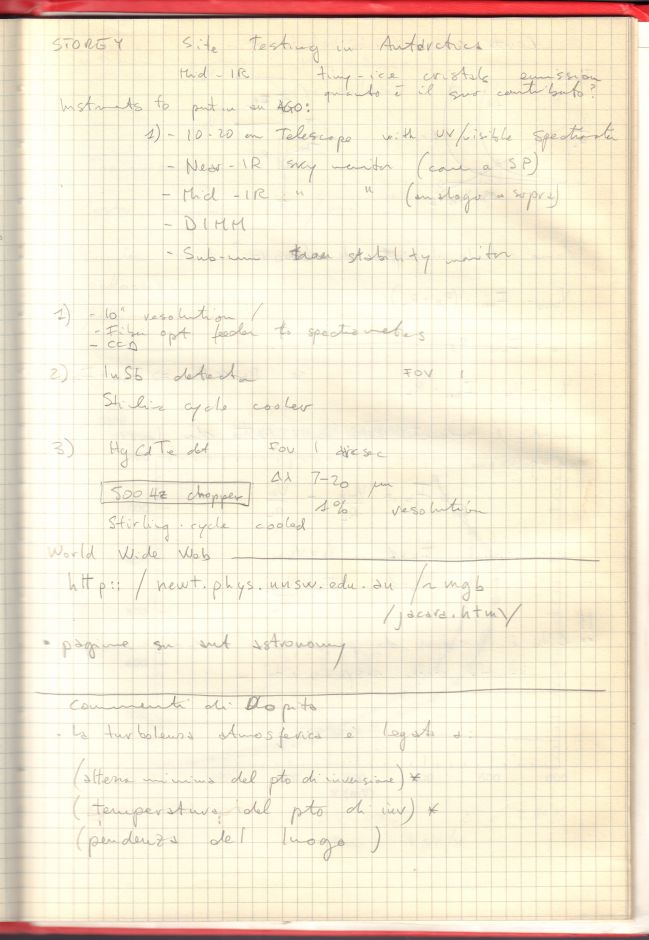 STOREY Site Testing in Antarctica
Mid-IR tiny-ice cristals emission
quanto è il suo contributo?
Instruments to put in an AGO:
1) - 10-20 cm Telescope with UV/visible Spectrometer
- Near-IR sky monitor (come a SP)
- Mid-IR " " (analogo a sopra)
- DIMM
- Sub-mm stability monitor
1) - 10" resolution /
- Fiber opt feeder to spectrometers
- CCD
2) InSb detector FOV 1
Stirling cycle cooler
3) HgCdTe det FOV 1 arcsec
Δλ 7-20 μm
500 Hz chopper
1% resolution
Stirling-cycle cooled
World Wide Web
http:: / newt.phys.unsw.edu.au /~mgb
/jacara.html/
• pagine su ant astronomy
commenti di Dopita
- La turbolenza atmosferica è legata a:
(altezza minima del pto di inversione) *
(temperatura del pto di inv) *
(pendenza del luogo)